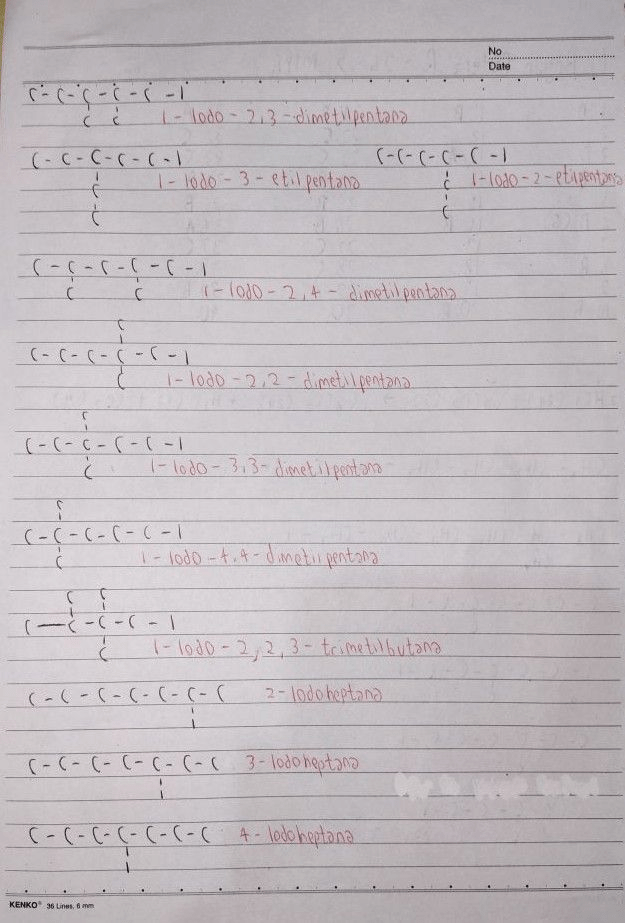 No
Date
C-C-C-C-C-I
C C 1-Iodo-2,3-dimetilpentana
C-C-C-C-C-I C-C-C-C-C-I
C 1-Iodo-3-etilpentana C 1-Iodo-2-etilpentana
C C
C-C-C-C-C-I
C C 1-Iodo-2,4-dimetilpentana
C
C-C-C-C-C-I
C 1-Iodo-2,2-dimetilpentana
C
C-C-C-C-C-I
C 1-Iodo-3,3-dimetilpentana
C
C-C-C-C-C-I
C 1-Iodo-4,4-dimetilpentana
C C
C-C-C-C-I
C 1-Iodo-2,2,3-trimetilbutana
C-C-C-C-C-C-C 2-Iodoheptana
I
C-C-C-C-C-C-C 3-Iodoheptana
I
C-C-C-C-C-C-C 4-Iodoheptana
I
KENKO® 36 Lines, 6 mm